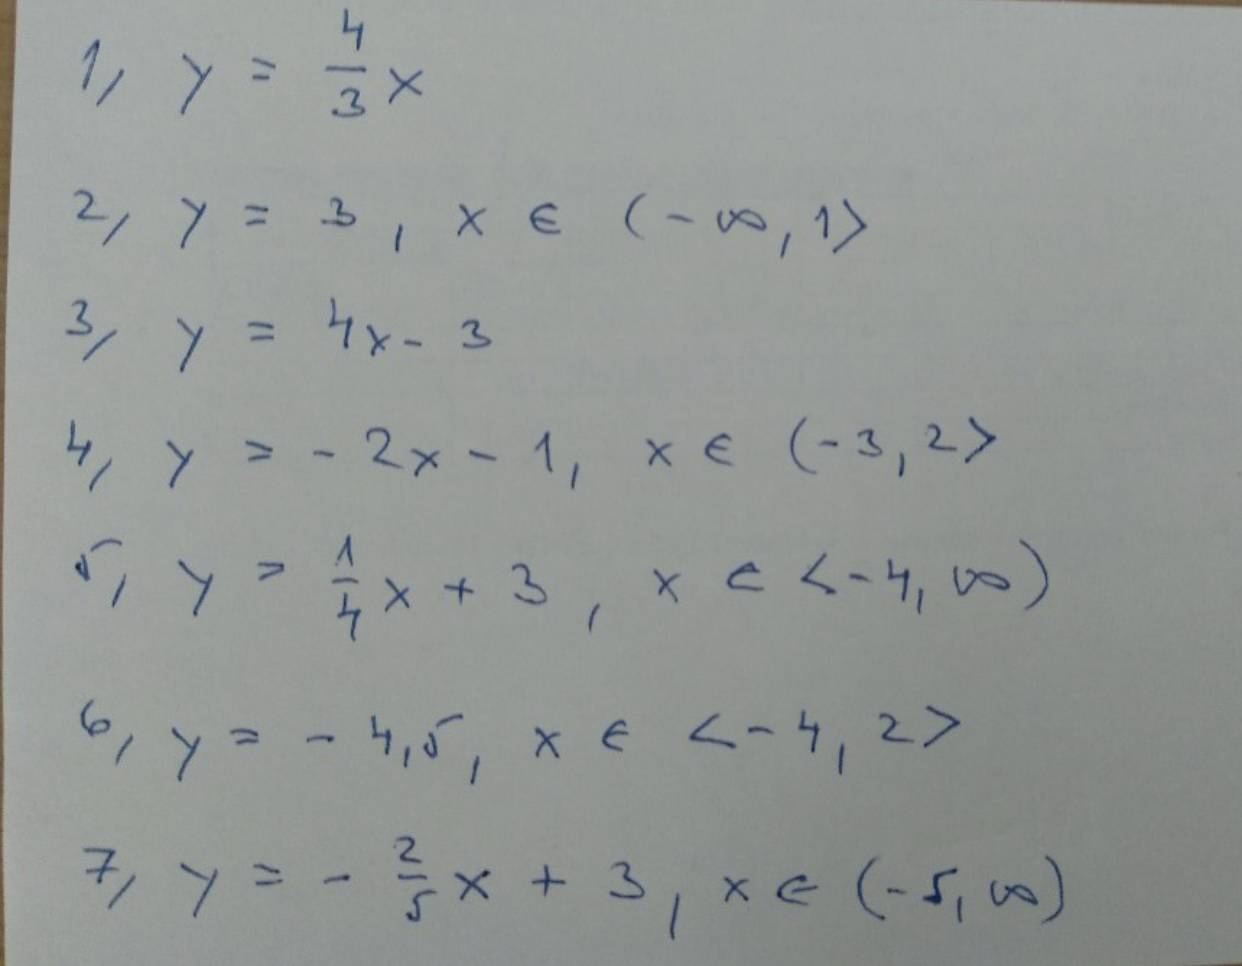 1, y = 4/3 x
2, y = 3, x ∈ (-∞, 1>
3, y = 4x - 3
4, y = -2x - 1, x ∈ (-3, 2>
5, y = 1/4 x + 3, x ∈ <-4, ∞)
6, y = -4,5, x ∈ <-4, 2>
7, y = -2/5 x + 3, x ∈ (-5, ∞)